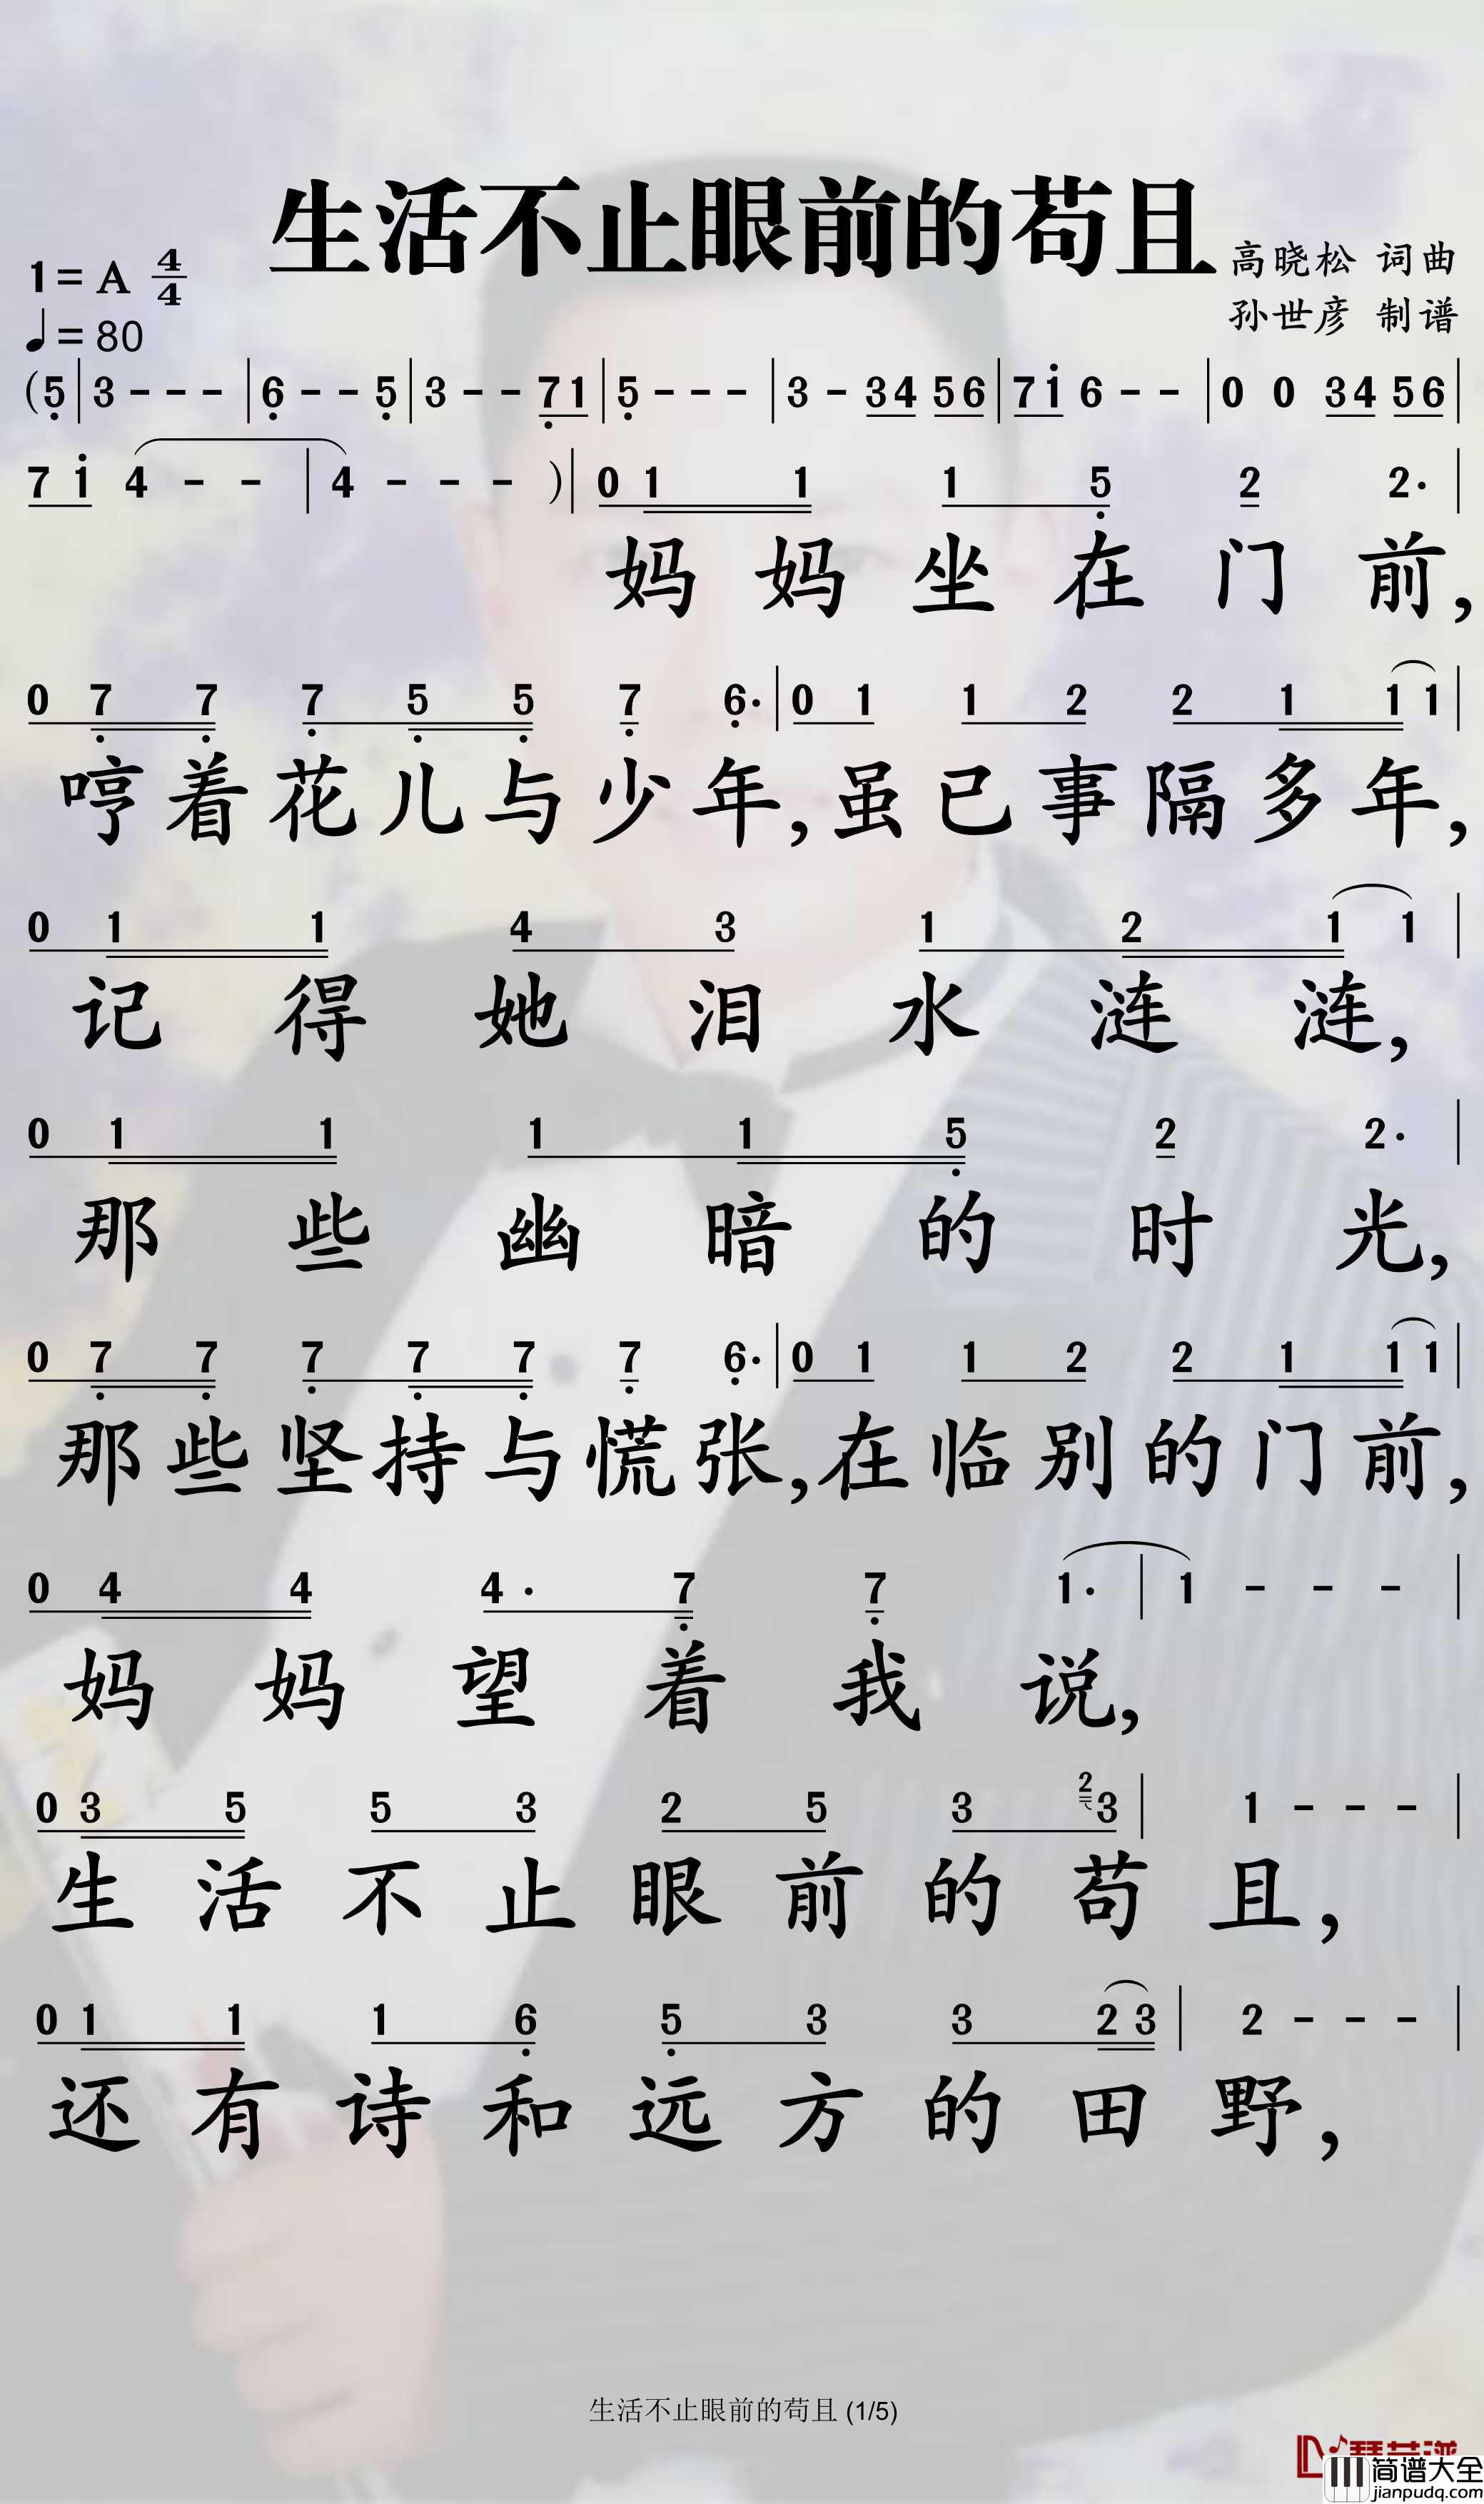 生活不止眼前的苟且
1=A 4/4
高晓松 词曲
♩=80
孙世彦 制谱
(5̣|3 - - -|6̣ - - 5̣|3 - - 7̣1|5̣ - - -|3 - 34 56|71̇ 6 - -|0 0 34 56|
71̇ 4 - -|4 - - -)|01 1 1 5̣ 2 2·|
妈妈坐在门前,
0 7̣ 7̣ 7̣ 5̣ 5̣ 7̣ 6̣·|0 1 1 2 2 1 1 1|
哼着花儿与少年,虽已事隔多年,
0 1 1 4 3 1 2 1 1|
记得她泪水涟涟,
0 1 1 1 1 5̣ 2 2·|
那些幽暗的时光,
0 7̣ 7̣ 7̣ 7̣ 7̣ 7̣ 6̣·|0 1 1 2 2 1 1 1|
那些坚持与慌张,在临别的门前,
0 4 4 4· 7̣ 7̣ 1·|1 - - -|
妈妈望着我说,
0 3 5 5 3 2 5 3 2 3|1 - - -|
生活不止眼前的苟且,
0 1 1 1 6̣ 5̣ 3 3 2 3|2 - - -|
还有诗和远方的田野,
生活不止眼前的苟且 (1/5)
简谱大全
jianpudq.com